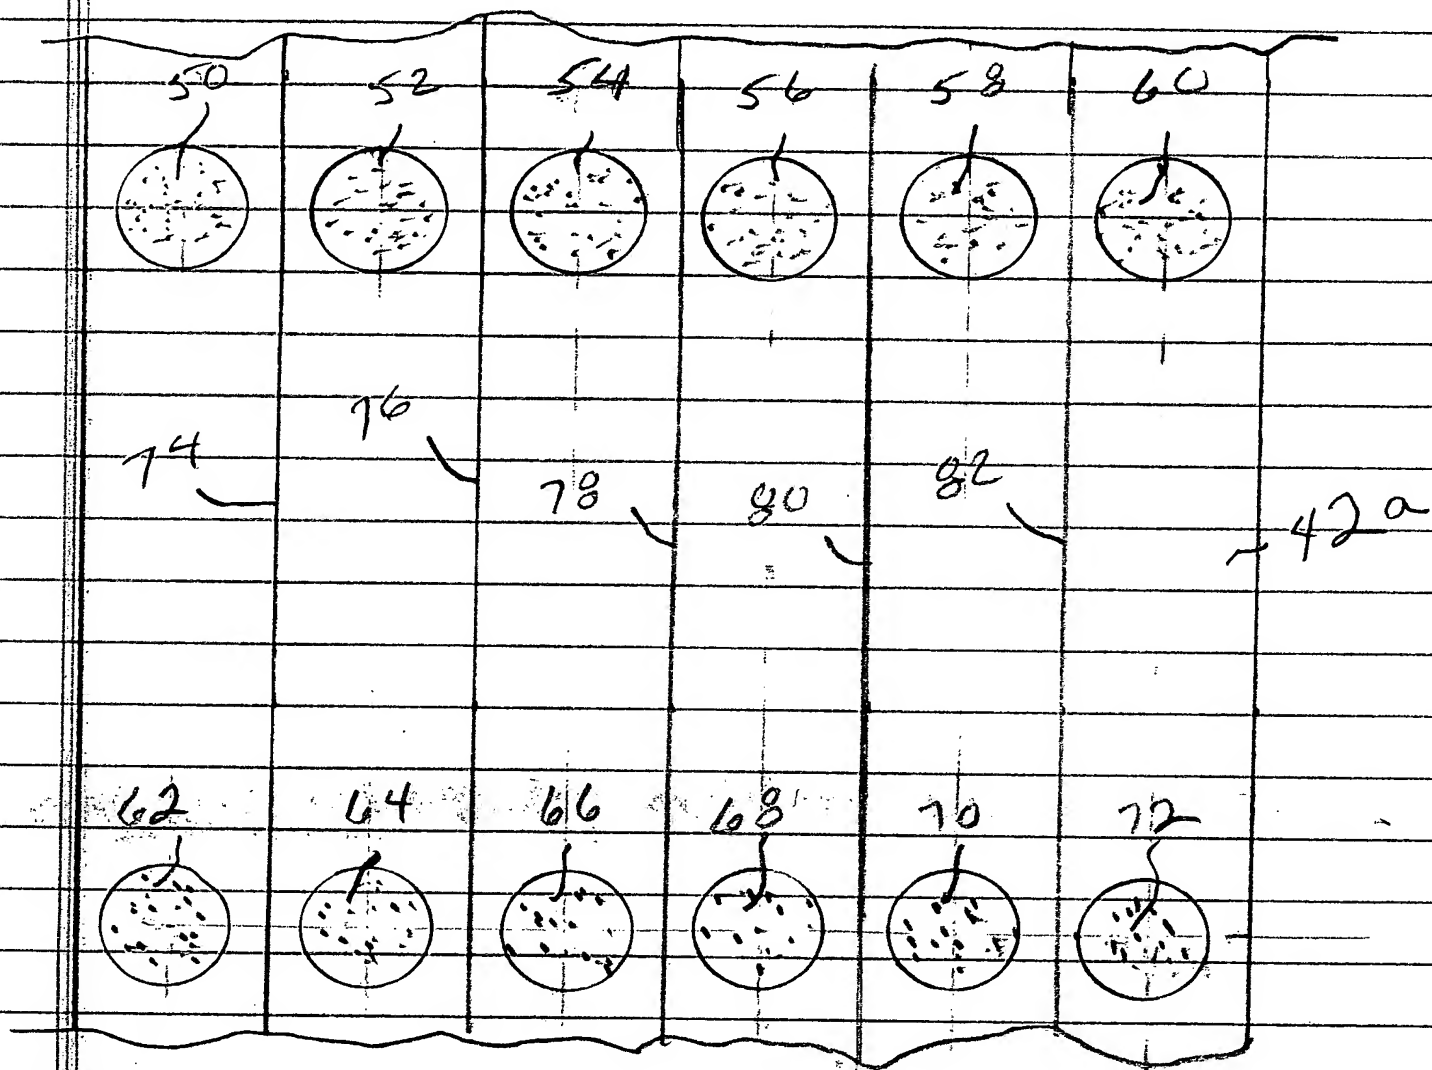 50 52 54 56 58 60
76
74
82
78 80
42a
62 64 66 68 70 72